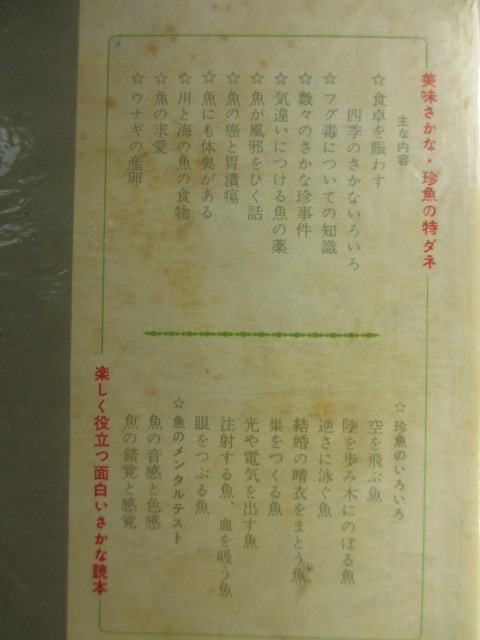 美味さかな・珍魚の特ダネ
主な内容
☆食卓を賑わす
四季のさかないろいろ
☆フグ毒についての知識
☆数々のさかな珍事件
☆気違いにつける魚の薬
☆魚が風邪をひく話
☆魚の癌と胃潰瘍
☆魚にも体臭がある
☆川と海の魚の食物
☆魚の求愛
☆ウナギの産卵
☆珍魚のいろいろ
空を飛ぶ魚
陸を歩み木にのぼる魚
逆さに泳ぐ魚
結婚の晴衣をまとう魚
巣をつくる魚
光や電気を出す魚
注射する魚、血を吸う魚
眼をつぶる魚
☆魚のメンタルテスト
魚の音感と色感
魚の錯覚と感覚
楽しく役立つ面白いさかな読本